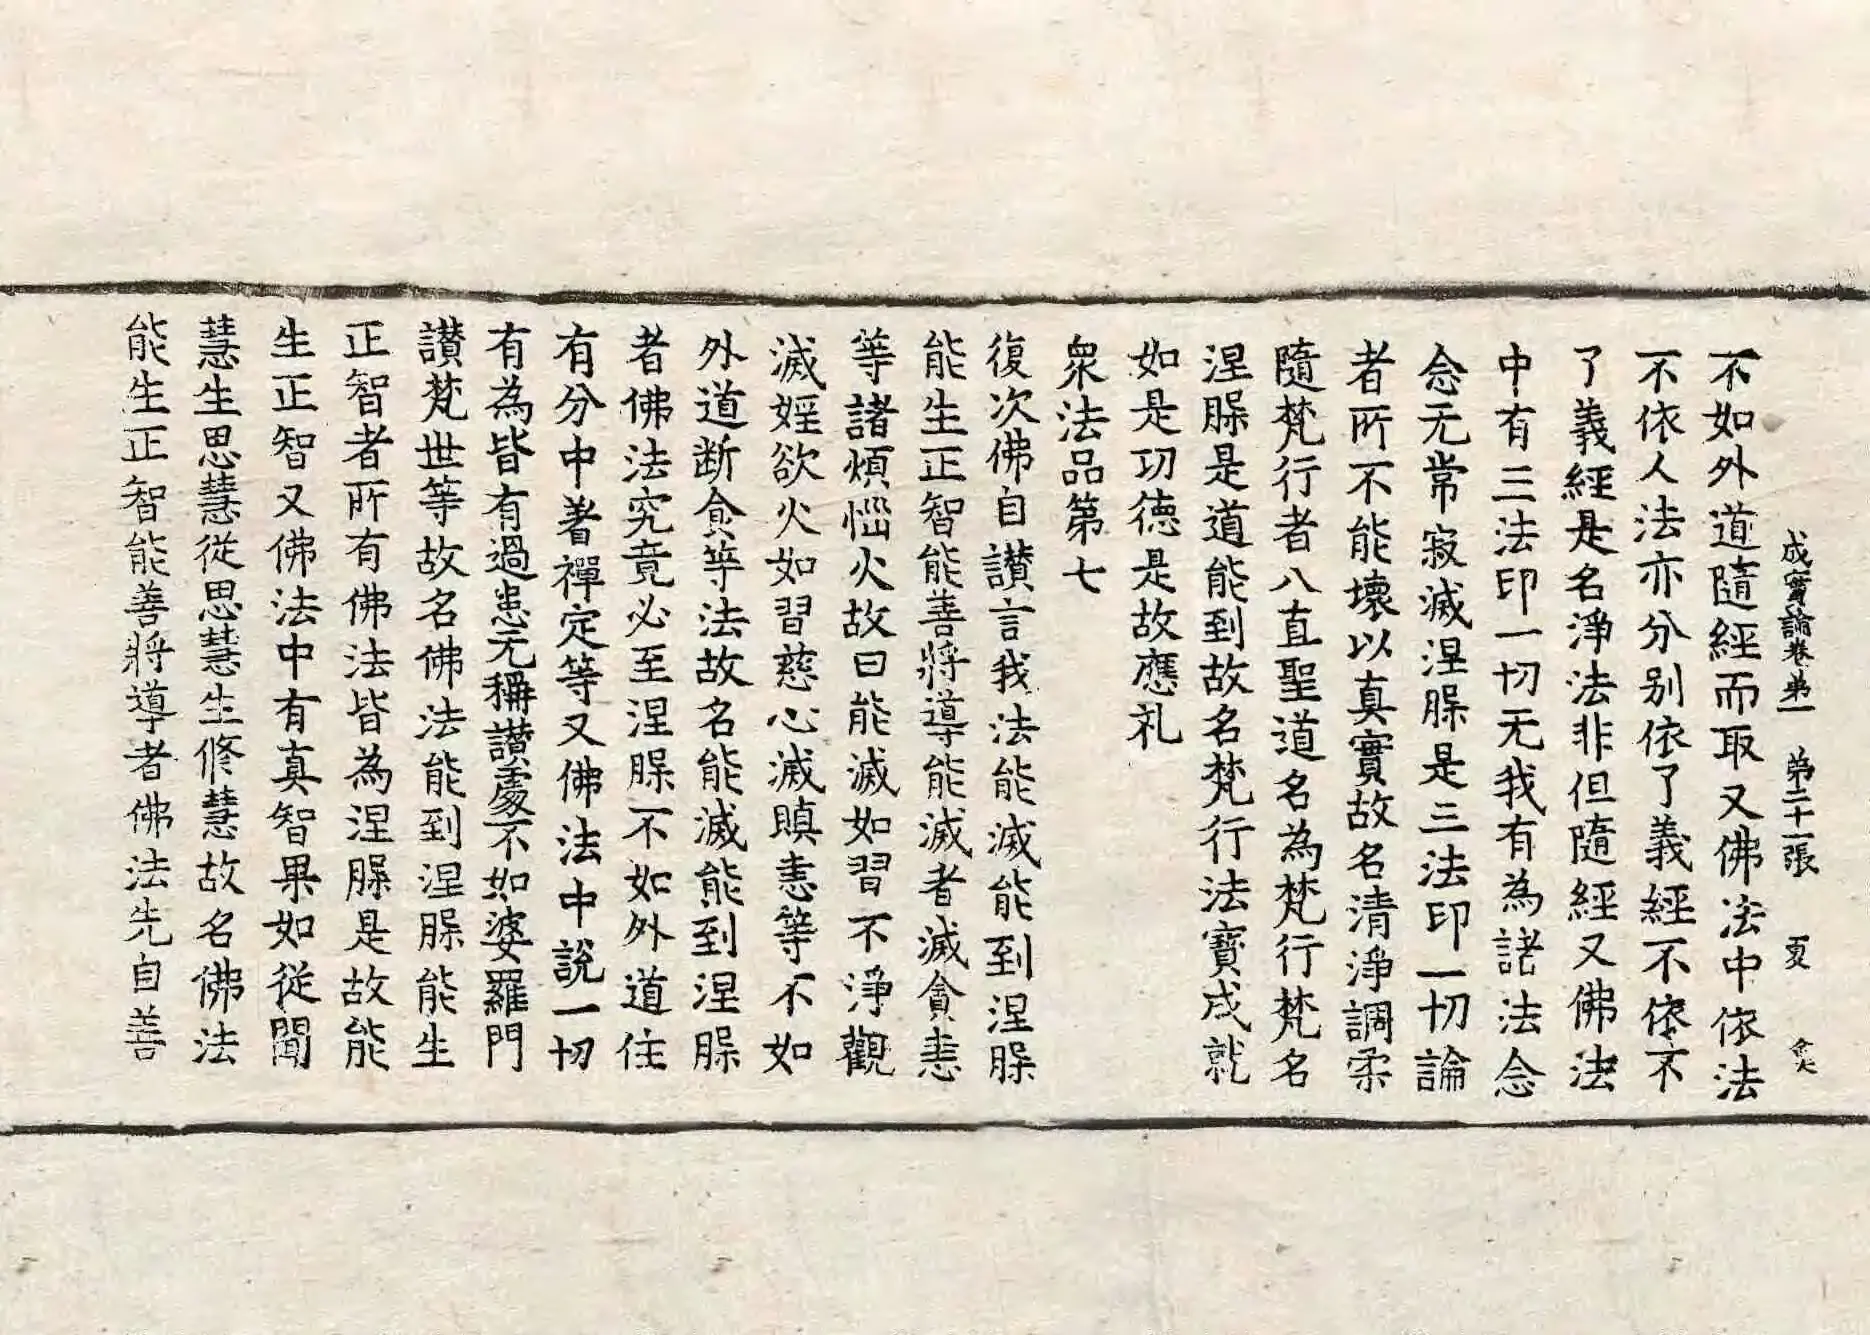 成實論卷第一　第二十一張　夏
不如外道隨經而取又佛法中依法
不依人法亦分別依了義經不依不
了義經是名淨法非但隨經又佛法
中有三法印一切无我有為諸法念
念无常寂滅涅槃是三法印一切論
者所不能壞以真實故名清淨調柔
隨梵行者八直聖道名為梵行梵名
涅槃是道能到故名梵行法寶成就
如是功德是故應礼
衆法品第七
復次佛自讃言我法能滅能到涅槃
能生正智能善將導能滅者滅貪恚
等諸煩惱火故曰能滅如習不淨觀
滅婬欲火如習慈心滅瞋恚等不如
外道断食等法故名能滅能到涅槃
者佛法究竟必至涅槃不如外道住
有分中著禪定等又佛法中説一切
有為皆有過患无稱讃處不如婆羅門
讃梵世等故名佛法能到涅槃能生
正智者所有佛法皆為涅槃是故能
生正智又佛法中有真智果如從聞
慧生思慧從思慧生修慧故名佛法
能生正智能善將導者佛法先自善